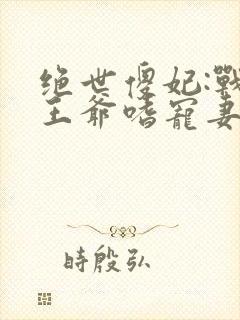 绝世傻妃:戰
王爺嗜寵妻
時殷弘